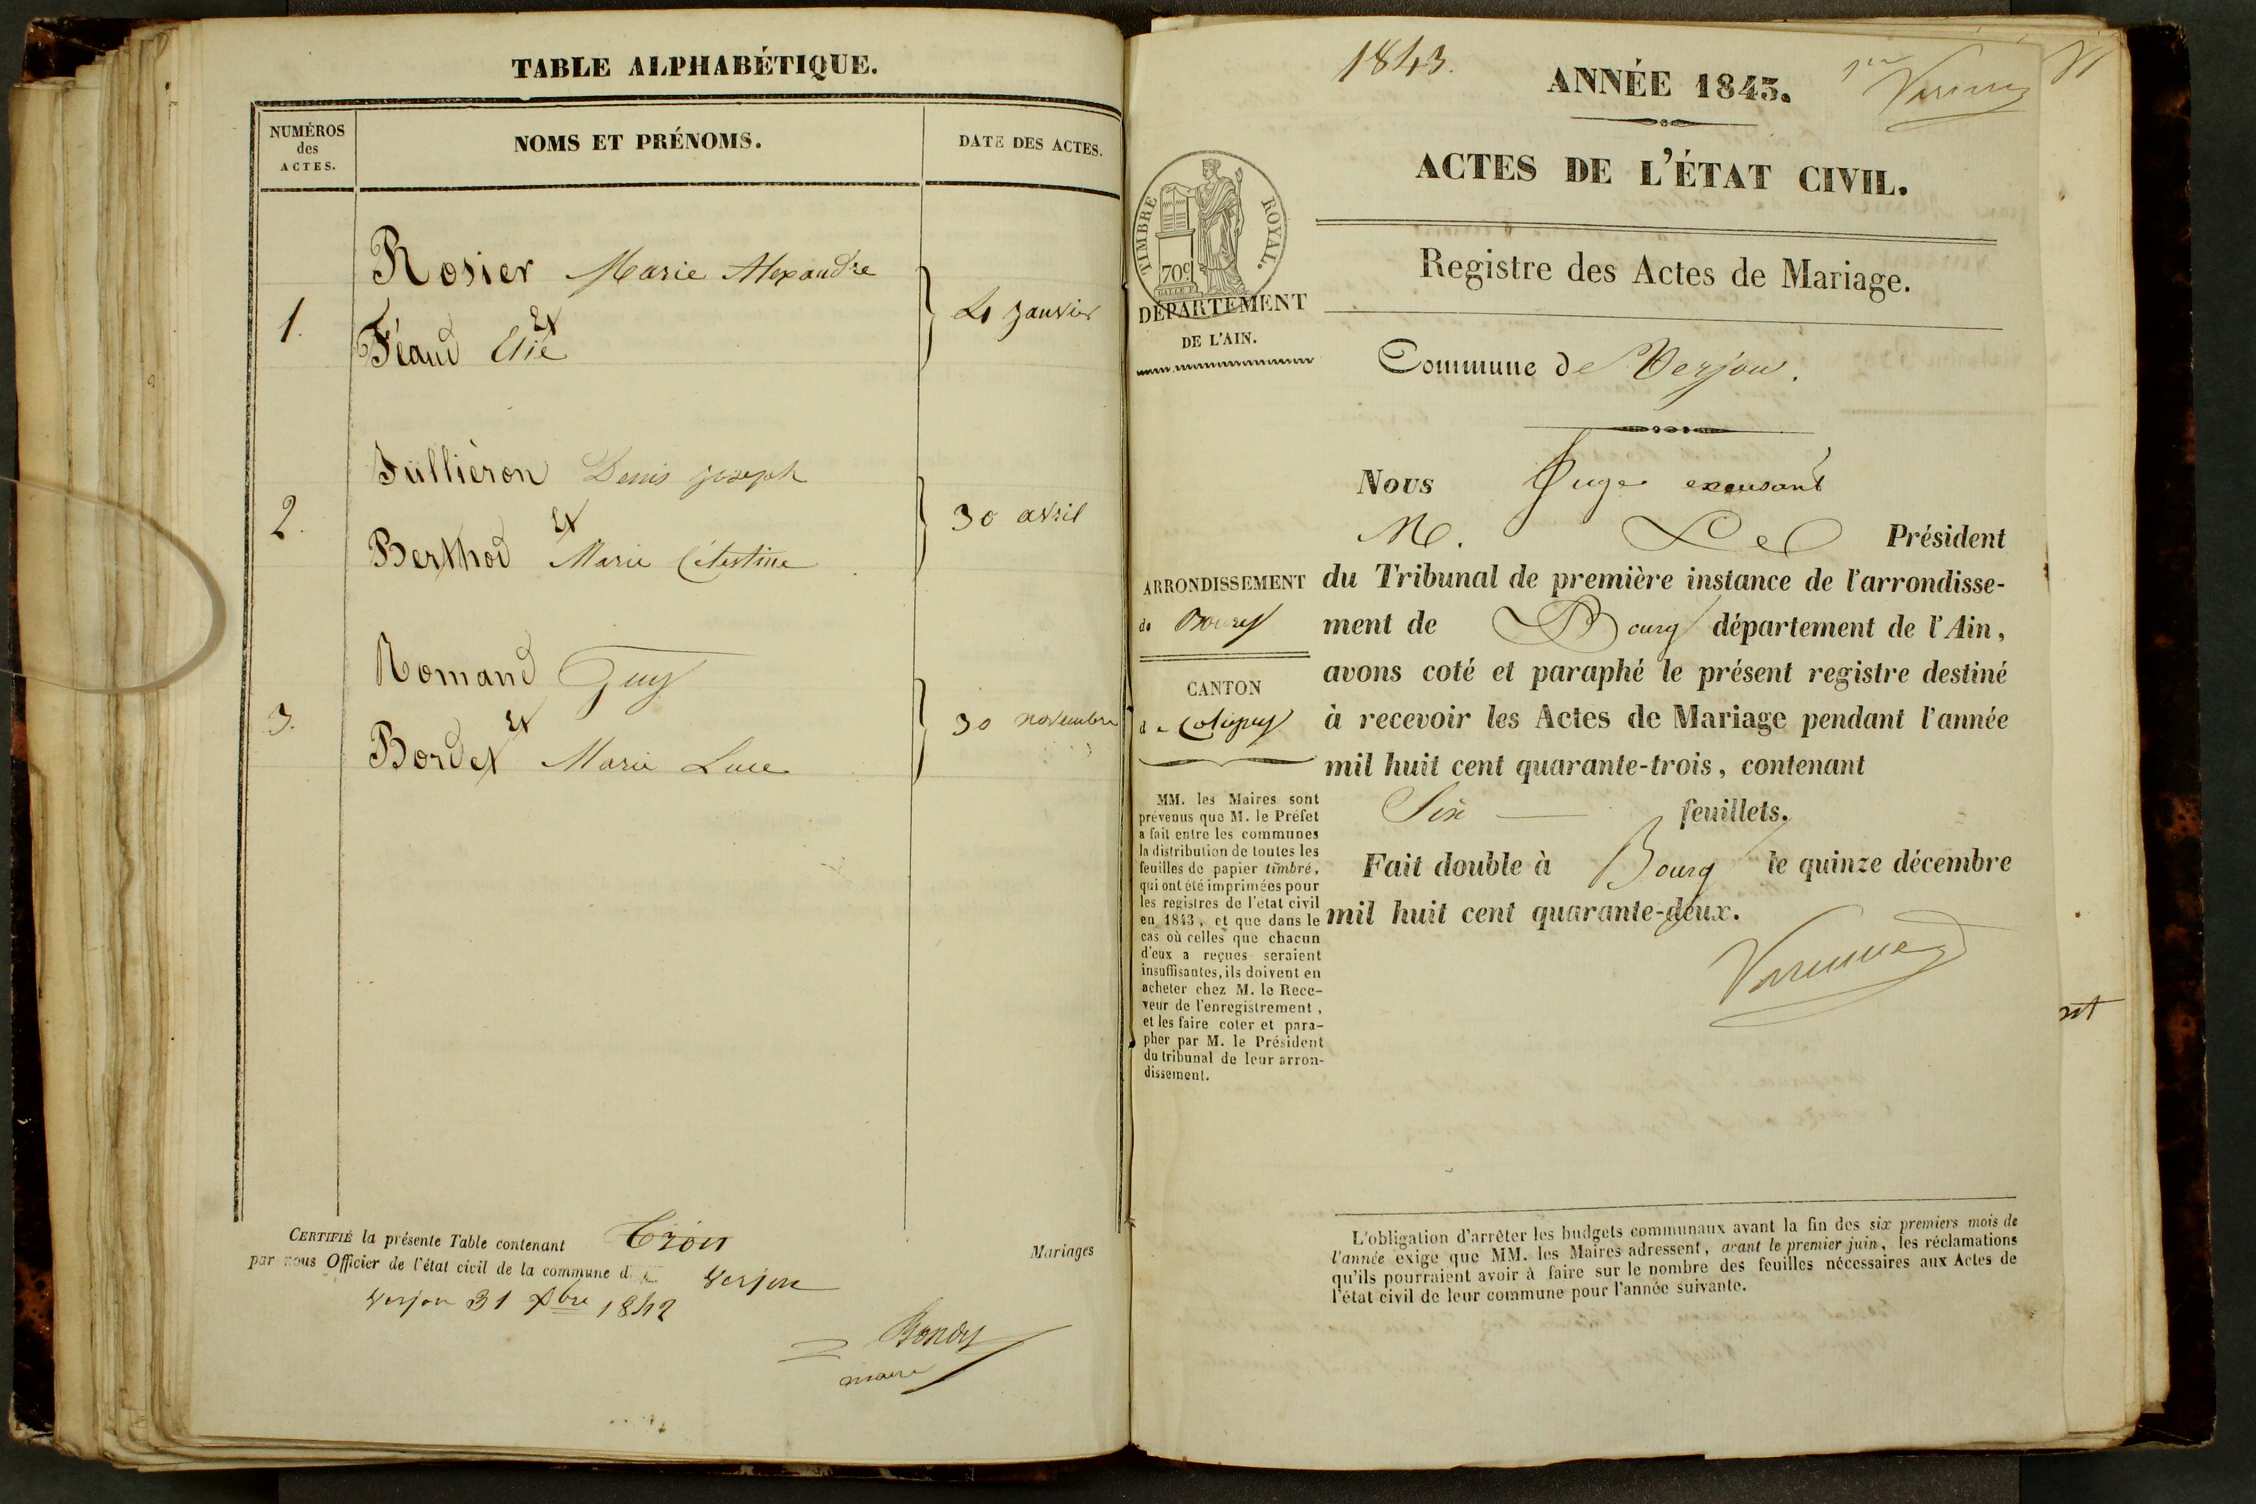 TABLE ALPHABÉTIQUE.
NUMÉROS
des
ACTES.
NOMS ET PRÉNOMS.
DATE DES ACTES.
Rosier Marie Alexandre
1. Et janvier
Féaud Elie
Jullièron Denis joseph
2. Et 30 avril
Berthod Marie Célestine
Romand Guy
3. Et 30 novembre
Bordet Marie Luce
CERTIFIÉ la présente Table contenant trois Mariages
par nous Officier de l'état civil de la commune de Verjon
Verjon 31 Xbre 1842
maire
1843.
ANNÉE 1843.
1er
ACTES DE L'ÉTAT CIVIL.
TIMBRE ROYAL.
70c
DÉPARTEMENT
DE L'AIN.
Registre des Actes de Mariage.
Commune de Verjon.
ARRONDISSEMENT
de Bourg
CANTON
de Coligny
MM. les Maires sont
prévenus que M. le Préfet
a fait entre les communes
la distribution de toutes les
feuilles de papier timbré,
qui ont été imprimées pour
les registres de l'état civil
en 1843, et que dans le
cas où celles que chacun
d'eux a reçues seraient
insuffisantes, ils doivent en
acheter chez M. le Rece-
veur de l'enregistrement,
et les faire coter et para-
pher par M. le Président
du tribunal de leur arron-
dissement.
Nous Juge excusant
M. Le Président
du Tribunal de première instance de l'arrondisse-
ment de Bourg département de l'Ain,
avons coté et paraphé le présent registre destiné
à recevoir les Actes de Mariage pendant l'année
mil huit cent quarante-trois, contenant
Six feuillets.
Fait double à Bourg le quinze décembre
mil huit cent quarante-deux.
L'obligation d'arrêter les budgets communaux avant la fin des six premiers mois de
l'année exige que MM. les Maires adressent, avant le premier juin, les réclamations
qu'ils pourraient avoir à faire sur le nombre des feuilles nécessaires aux Actes de
l'état civil de leur commune pour l'année suivante.